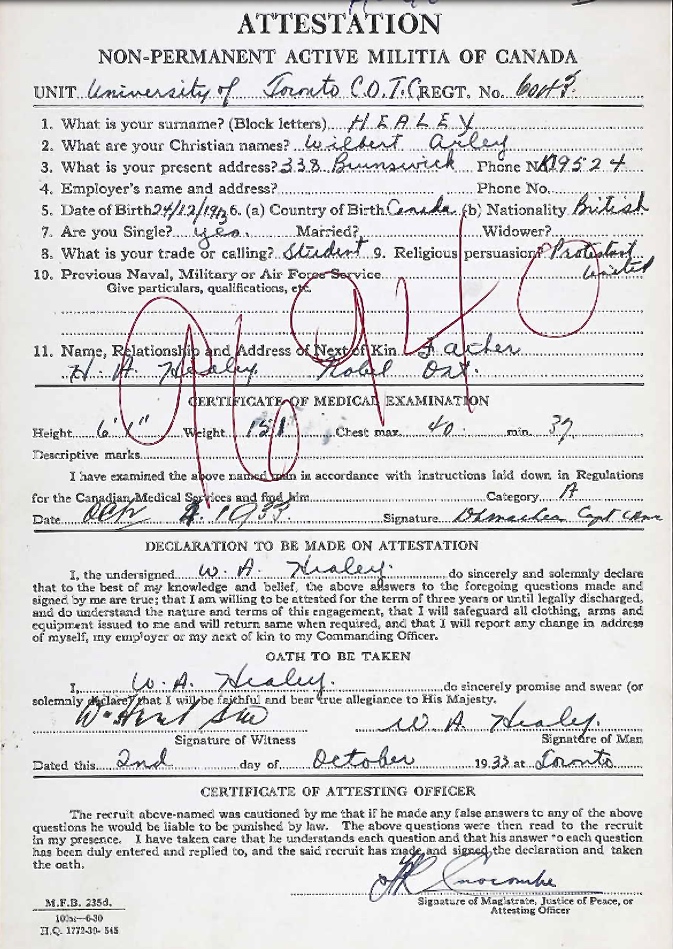 ATTESTATION
NON-PERMANENT ACTIVE MILITIA OF CANADA
UNIT University of Toronto C.O.T.C. REGT. No.
1. What is your surname? (Block letters) HEALEY
2. What are your Christian names? Wilbert
3. What is your present address? 338 Brunswick Phone No. 9524
4. Employer's name and address? Phone No.
5. Date of Birth 24/12/ 6. (a) Country of Birth Canada (b) Nationality British
7. Are you Single? yes. Married? Widower?
8. What is your trade or calling? Student 9. Religious persuasion? Protestant
United
10. Previous Naval, Military or Air Force Service
Give particulars, qualifications, etc.
11. Name, Relationship and Address of Next of Kin Father
H. A. Healey Nobel Ont.
96940
CERTIFICATE OF MEDICAL EXAMINATION
Height 6'1" Weight 151 Chest max. 40 min. 37
Descriptive marks
I have examined the above named man in accordance with instructions laid down in Regulations
for the Canadian Medical Services and find him Category A
Date 1933. Signature Capt
DECLARATION TO BE MADE ON ATTESTATION
I, the undersigned W. A. Healey. do sincerely and solemnly declare
that to the best of my knowledge and belief, the above answers to the foregoing questions made and
signed by me are true; that I am willing to be attested for the term of three years or until legally discharged,
and do understand the nature and terms of this engagement, that I will safeguard all clothing, arms and
equipment issued to me and will return same when required, and that I will report any change in address
of myself, my employer or my next of kin to my Commanding Officer.
OATH TO BE TAKEN
I, W. A. Healey. do sincerely promise and swear (or
solemnly declare) that I will be faithful and bear true allegiance to His Majesty.
W A Healey.
Signature of Witness Signature of Man
Dated this 2nd day of October 1933 at Toronto
CERTIFICATE OF ATTESTING OFFICER
The recruit above-named was cautioned by me that if he made any false answers to any of the above
questions he would be liable to be punished by law. The above questions were then read to the recruit
in my presence. I have taken care that he understands each question and that his answer to each question
has been duly entered and replied to, and the said recruit has made and signed the declaration and taken
the oath.
Signature of Magistrate, Justice of Peace, or
Attesting Officer
M.F.B. 235d.
10M-6-30
H.Q. 1772-39-545